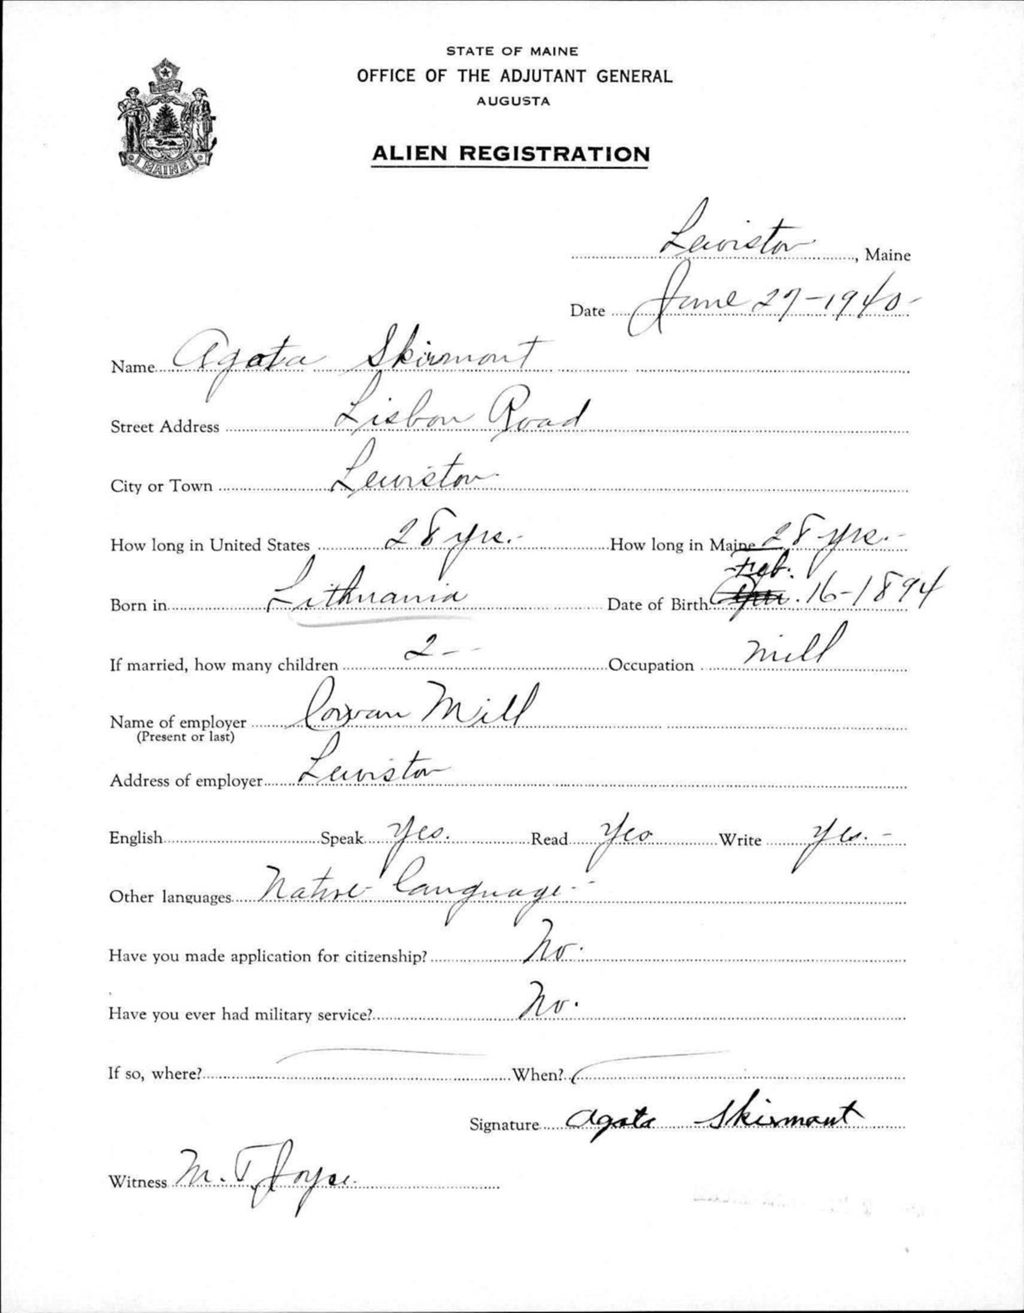 STATE OF MAINE
OFFICE OF THE ADJUTANT GENERAL
AUGUSTA
ALIEN REGISTRATION
MAINE
Lewiston, Maine
Date June 27-1940-
Name Agata Skirmont
Street Address Lisbon Road
City or Town Lewiston
How long in United States 28 yrs.- How long in Maine 28 yrs.-
Feb.
Born in Lithuania Date of Birth 16-1894
If married, how many children 2-- Occupation mill
Name of employer Cowan Mill
(Present or last)
Address of employer Lewiston
English Speak Yes. Read Yes Write Yes.-
Other languages Native language-
Have you made application for citizenship? No.
Have you ever had military service? No.
If so, where? When?
Signature Agata Skirmont
Witness M. T. Joyce